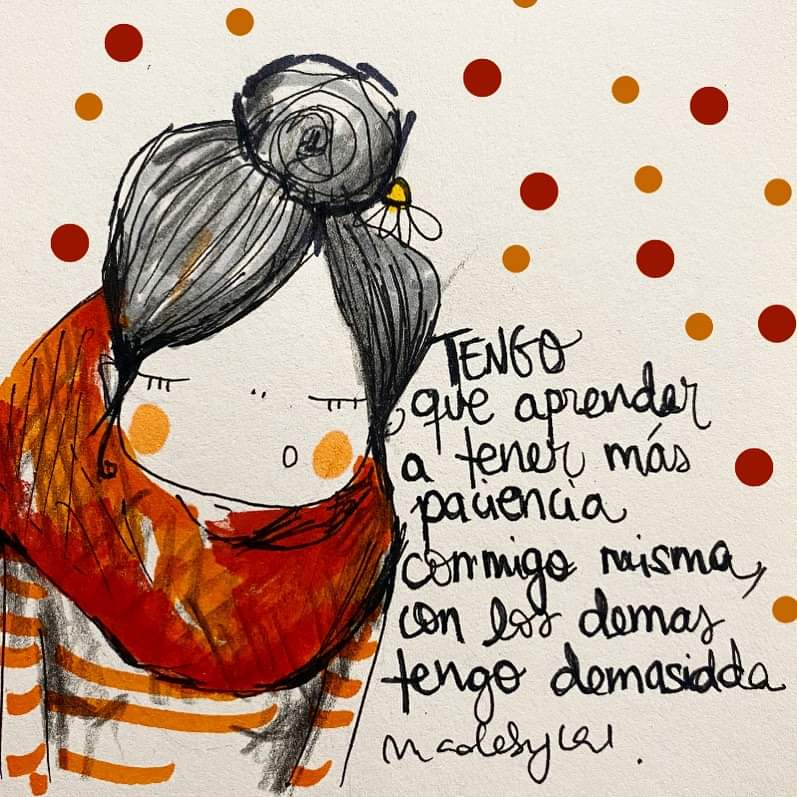 TENGO
que aprender
a tener más
paciencia
conmigo misma,
con los demas
tengo demasidda